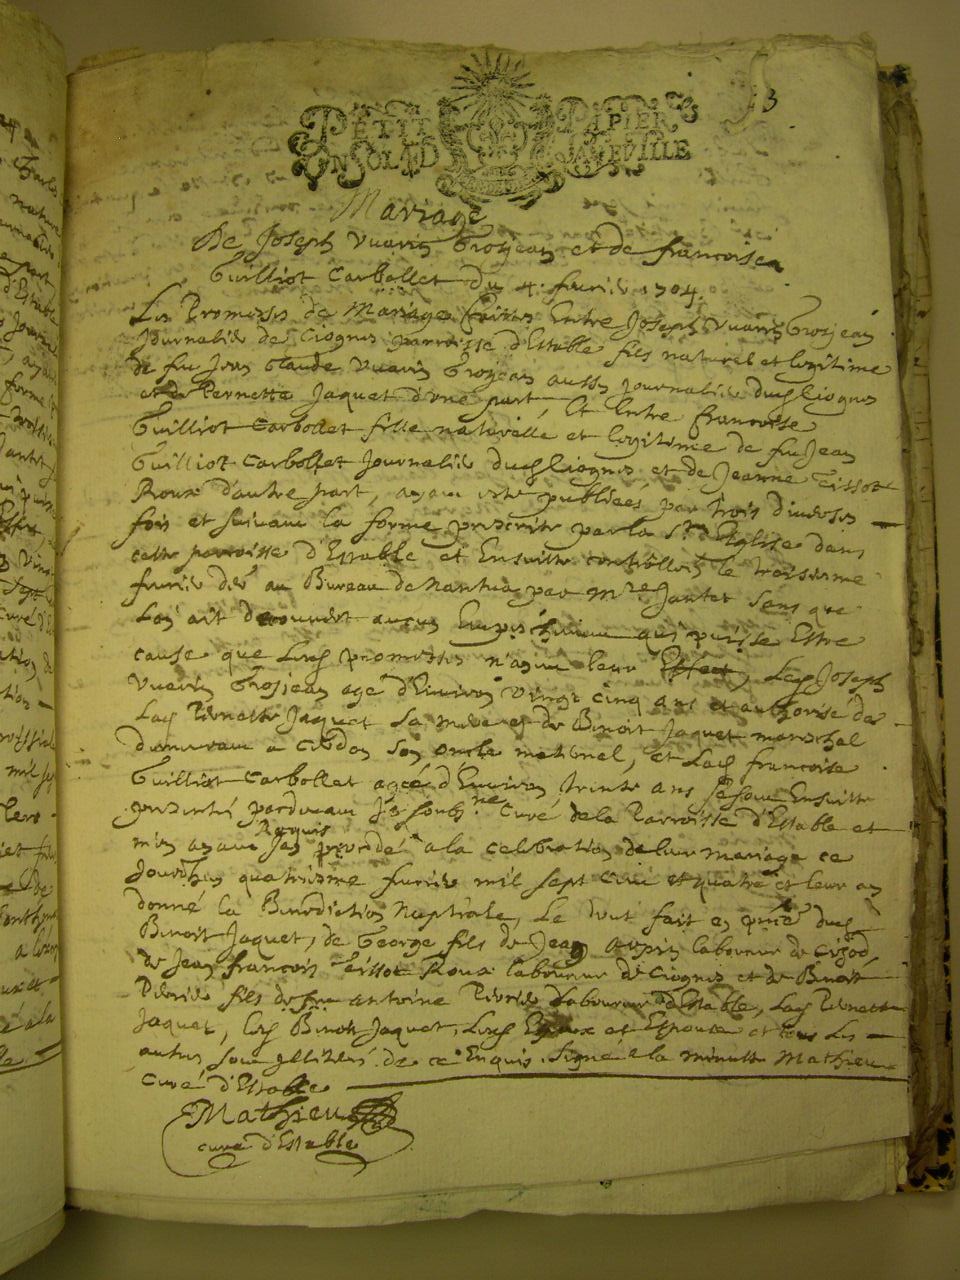 3
PETIT PAPIER
UN SOL AD LA FEUILLE
Mariage
De Joseph Vuarin Grosjean et de francoise
Guilliot Carbollet du 4. fevrie 1704.
Les Promesses de Mariage faittes Entre Joseph Vuarin Grosjean
Journalie de Ciognes parroisse d'Estable fils naturel et legitime
de feu Jean Claude Vuarin Grosjean aussy journalie
et de Pernette Jaquet d'une part, Et Entre francoise
Guilliot Carbollet fille naturelle et legitime de feu Jean
Guilliot Carbollet journalie et de Jeanne Tissot
Roux d'autre part, ayant esté publiées par trois diverses
fois et suivant la forme prescrite par la Ste Eglise dans
cette parroisse d'Estable et Ensuitte controllées le troisieme
fevrie du au Bureau de Nantua par Mre Jantet sans que
l'on ait decouvert aucun Empeschement qui puisse Estre
cause que promesses n'ayent leur Effect, Joseph
Vuarin Grosjean agé d'Environ vingt cinq ans et authorisé de
Pernette Jaquet sa mere et de Benoit Jaquet mareschal
demeurant a Cerdon son oncle maternel, Et francoise
Guilliot Carbollet agée d'Environ trente ans se sont Ensuitte
presenté pardevant Je soub.né Curé de la Parroisse d'Estable et
m'en ayant Requis J'ay procedé a la celebration de leur mariage ce
Jourdhuy quatrieme fevrie mil sept cent et quatre et leur ay
donné la Benediction Nuptiale, Le tout fait en pnce
Benoit Jaquet, de George fils de Jean laboureur de
de Jean francois Tissot Roux laboureur de Ciognes et de Benoit
fils de feu antoine Laboureur d'Estable, Pernette
Jaquet, Benoit Jaquet, Epoux et Espouse et tous les
autres sont illiterés de ce Enquis. Signé a la minutte Mathieu
curé d'Estable
Mathieu
curé d'Estable